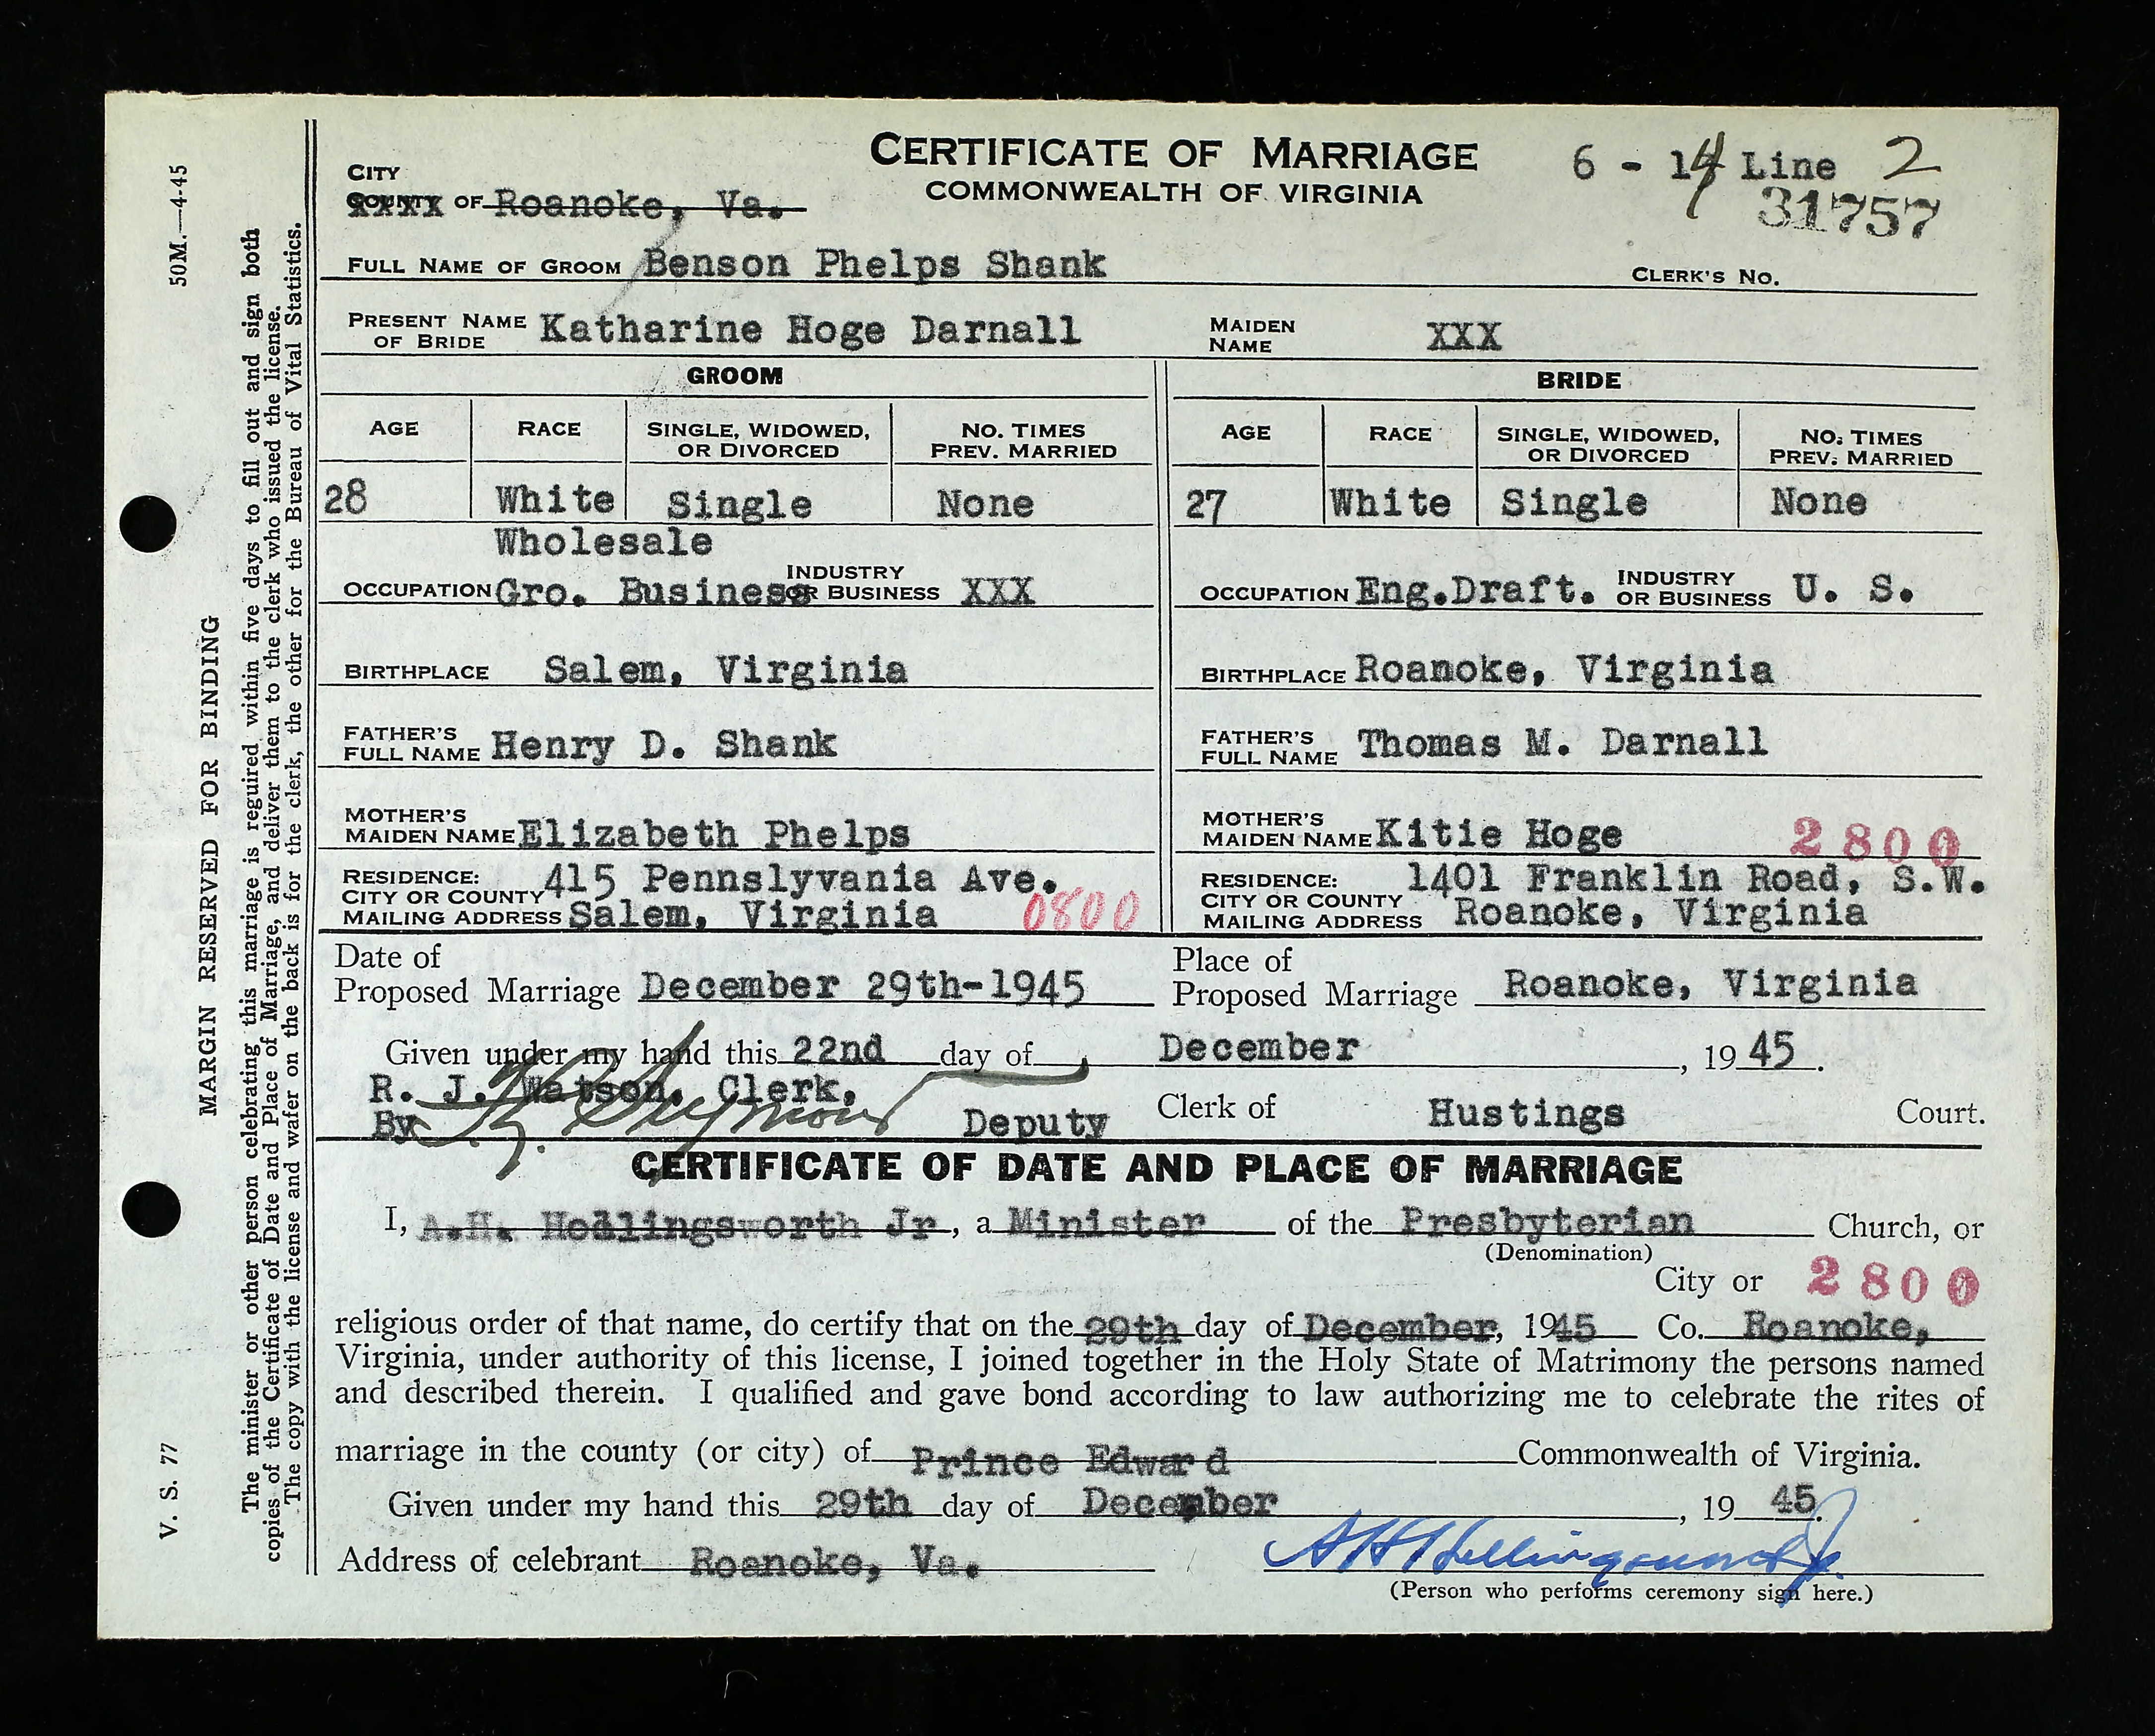 CERTIFICATE OF MARRIAGE
COMMONWEALTH OF VIRGINIA
6 - 14 Line 2
31757
CITY
COUNTY OF Roanoke, Va.
FULL NAME OF GROOM Benson Phelps Shank CLERK'S NO.
PRESENT NAME OF BRIDE Katharine Hoge Darnall MAIDEN NAME XXX
GROOM BRIDE
AGE RACE SINGLE, WIDOWED, OR DIVORCED NO. TIMES PREV. MARRIED AGE RACE SINGLE, WIDOWED, OR DIVORCED NO. TIMES PREV. MARRIED
28 White Single None 27 White Single None
Wholesale
OCCUPATION Gro. Business INDUSTRY OR BUSINESS XXX OCCUPATION Eng.Draft. INDUSTRY OR BUSINESS U. S.
BIRTHPLACE Salem, Virginia BIRTHPLACE Roanoke, Virginia
FATHER'S FULL NAME Henry D. Shank FATHER'S FULL NAME Thomas M. Darnall
MOTHER'S MAIDEN NAME Elizabeth Phelps MOTHER'S MAIDEN NAME Kitie Hoge 2800
RESIDENCE: 415 Pennslyvania Ave. RESIDENCE: 1401 Franklin Road, S.W.
CITY OR COUNTY CITY OR COUNTY
MAILING ADDRESS Salem, Virginia 0800 MAILING ADDRESS Roanoke, Virginia
Date of Proposed Marriage December 29th-1945 Place of Proposed Marriage Roanoke, Virginia
Given under my hand this 22nd day of December, 1945.
R. J. Watson, Clerk,
By Seymour Deputy Clerk of Hustings Court.
CERTIFICATE OF DATE AND PLACE OF MARRIAGE
I, A.H. Hollingsworth Jr, a Minister of the Presbyterian Church, or
(Denomination)
City or 2800
religious order of that name, do certify that on the 29th day of December, 1945 Co. Roanoke,
Virginia, under authority of this license, I joined together in the Holy State of Matrimony the persons named
and described therein. I qualified and gave bond according to law authorizing me to celebrate the rites of
marriage in the county (or city) of Prince Edward Commonwealth of Virginia.
Given under my hand this 29th day of December, 1945.
Address of celebrant Roanoke, Va. A H Hollingsworth Jr.
(Person who performs ceremony sign here.)
50M.—4-45
MARGIN RESERVED FOR BINDING
V. S. 77
The minister or other person celebrating this marriage is required within five days to fill out and sign both
copies of the Certificate of Date and Place of Marriage, and deliver them to the clerk who issued the license.
The copy with the license and wafer on the back is for the clerk, the other for the Bureau of Vital Statistics.